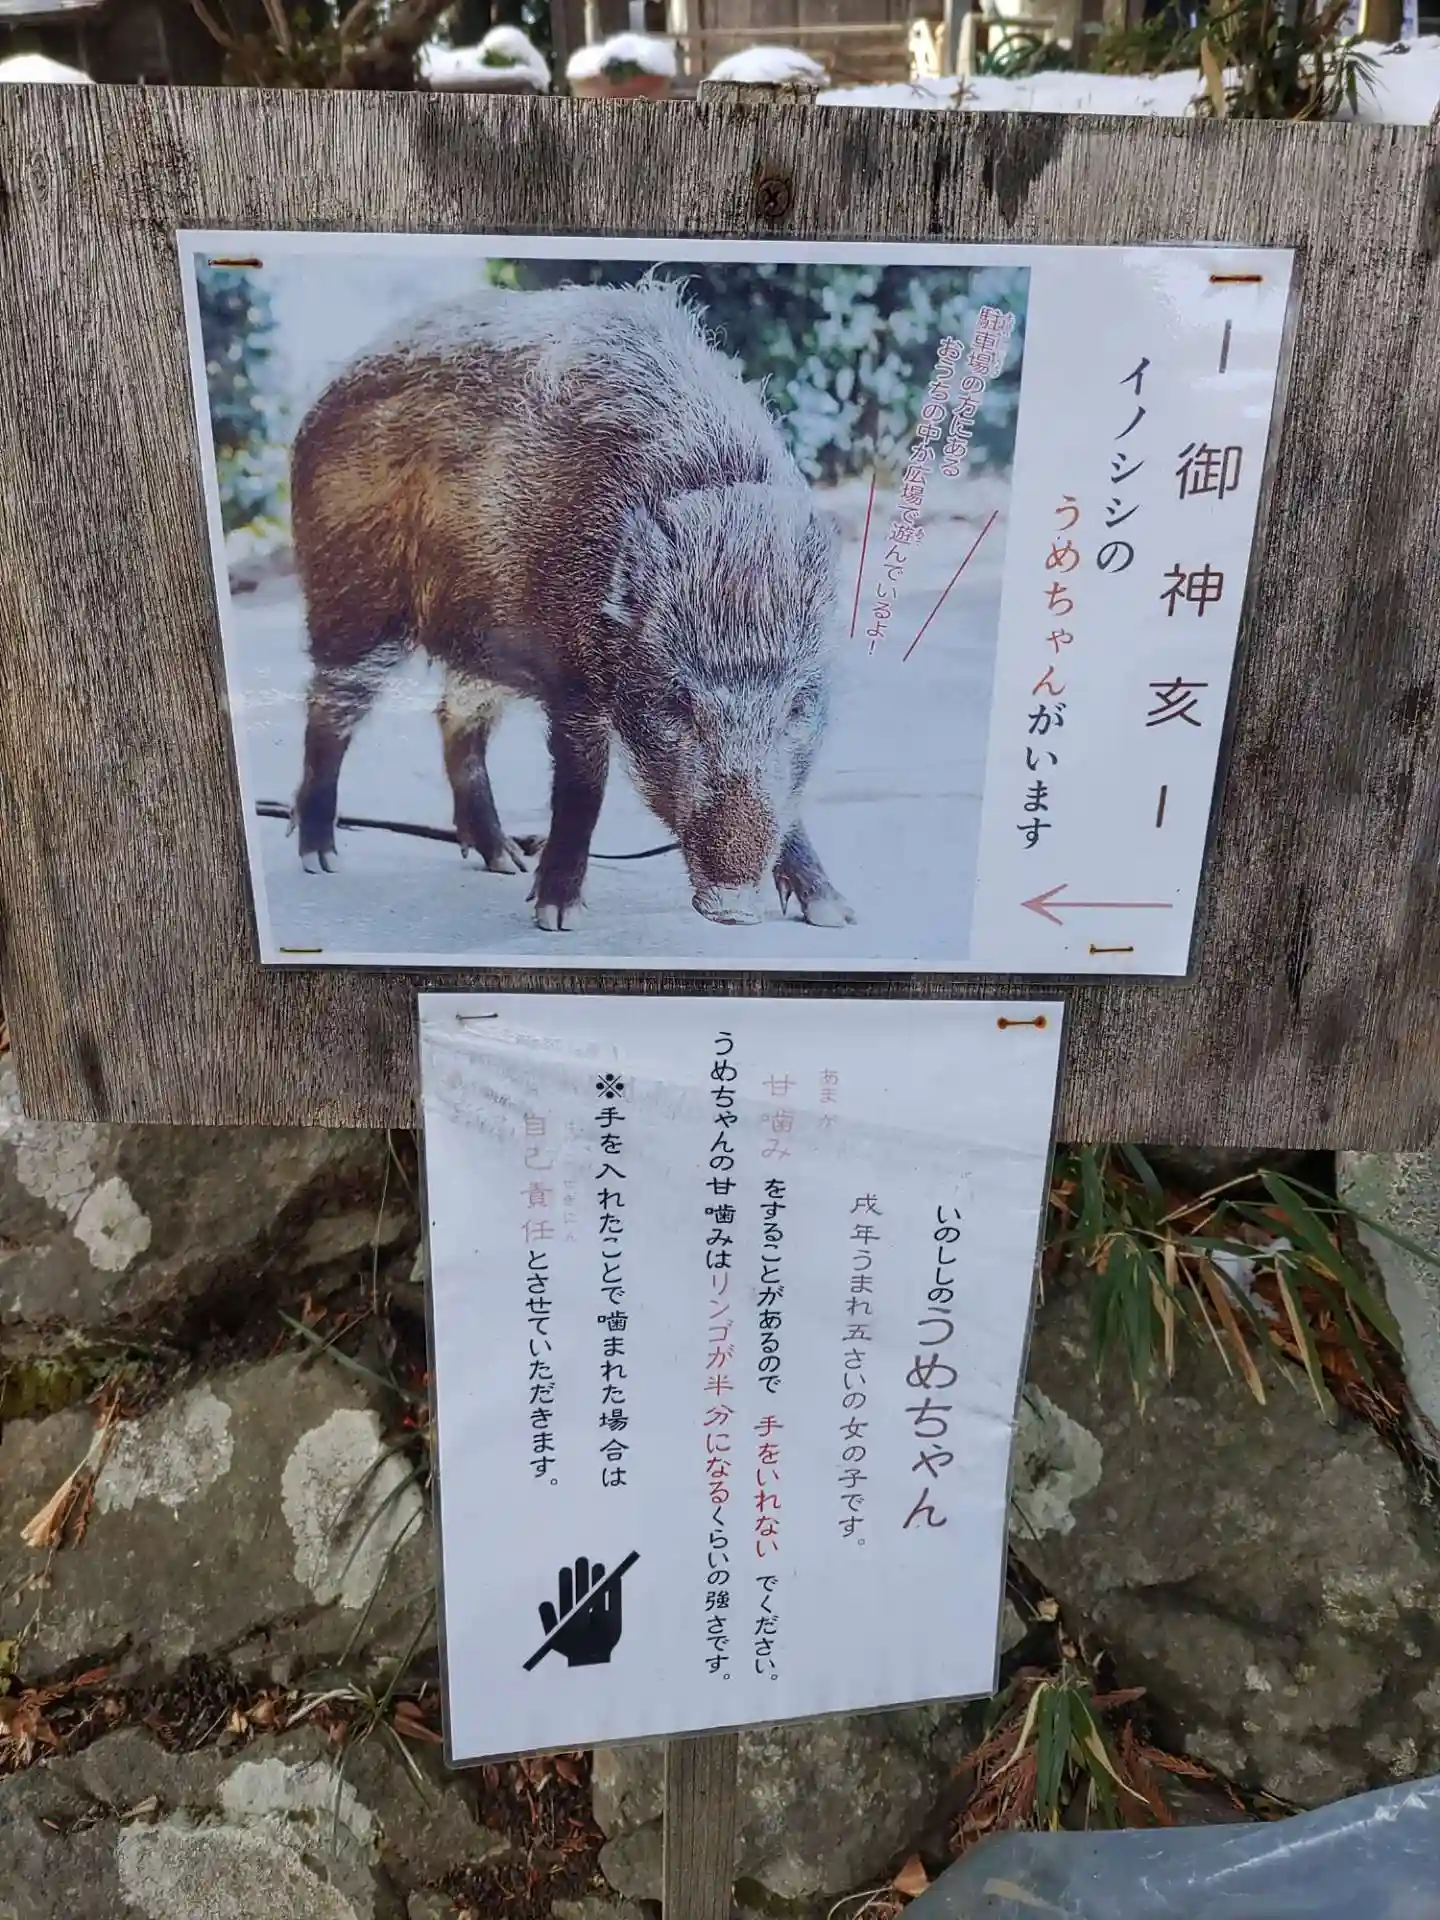 ー御神亥ー
イノシシの
うめちゃんがいます
駐車場の方にある
おうちの中か広場で遊んでいるよ！
いのししのうめちゃん
戌年うまれ五さいの女の子です。
あまが
甘噛みをすることがあるので 手をいれない でください。
うめちゃんの甘噛みはリンゴが半分になるくらいの強さです。
※手を入れたことで噛まれた場合は
せきにん
自己責任とさせていただきます。